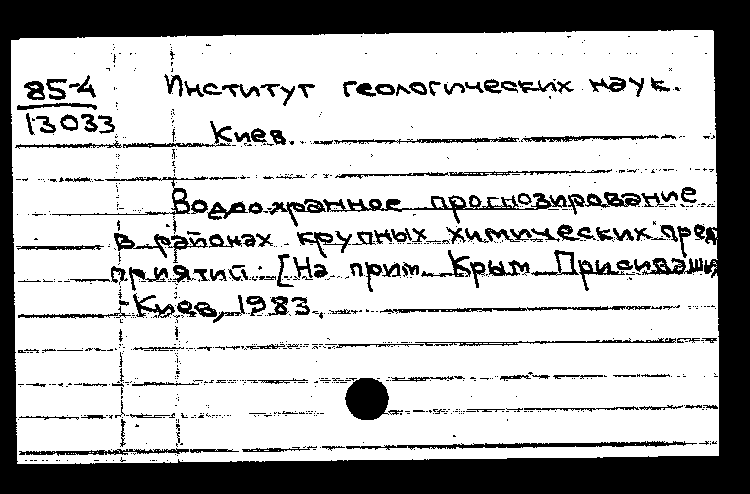 85-4
13033
Институт геологических наук.
Киев.
Водоохранное прогнозирование
в районах крупных химических пред
приятий: [На прим. Крым. Присиваши
-Киев, 1983.